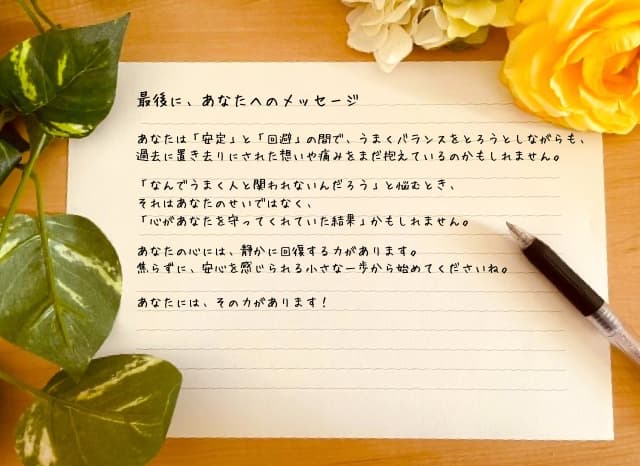 最後に、あなたへのメッセージ
あなたは「安定」と「回避」の間で、うまくバランスをとろうとしながらも、
過去に置き去りにされた想いや痛みをまだ抱えているのかもしれません。
「なんでうまく人と関われないんだろう」と悩むとき、
それはあなたのせいではなく、
「心があなたを守ってくれていた結果」かもしれません。
あなたの心には、静かに回復する力があります。
焦らずに、安心を感じられる小さな一歩から始めてくださいね。
あなたには、その力があります！